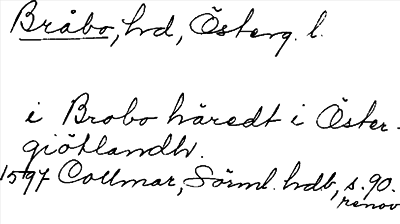 Bråbo, hd, Österg. l.
i Brobo häredt i Öster-
giötlandh.
1597 Collmar, Sörml. hdb, s. 90.
renov